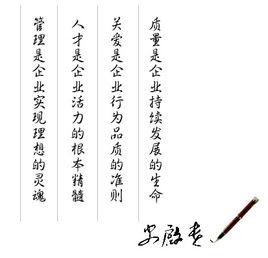 管理是企业实现理想的灵魂
人才是企业活力的根本精髓
关爱是企业行为品质的准则
质量是企业持续发展的生命